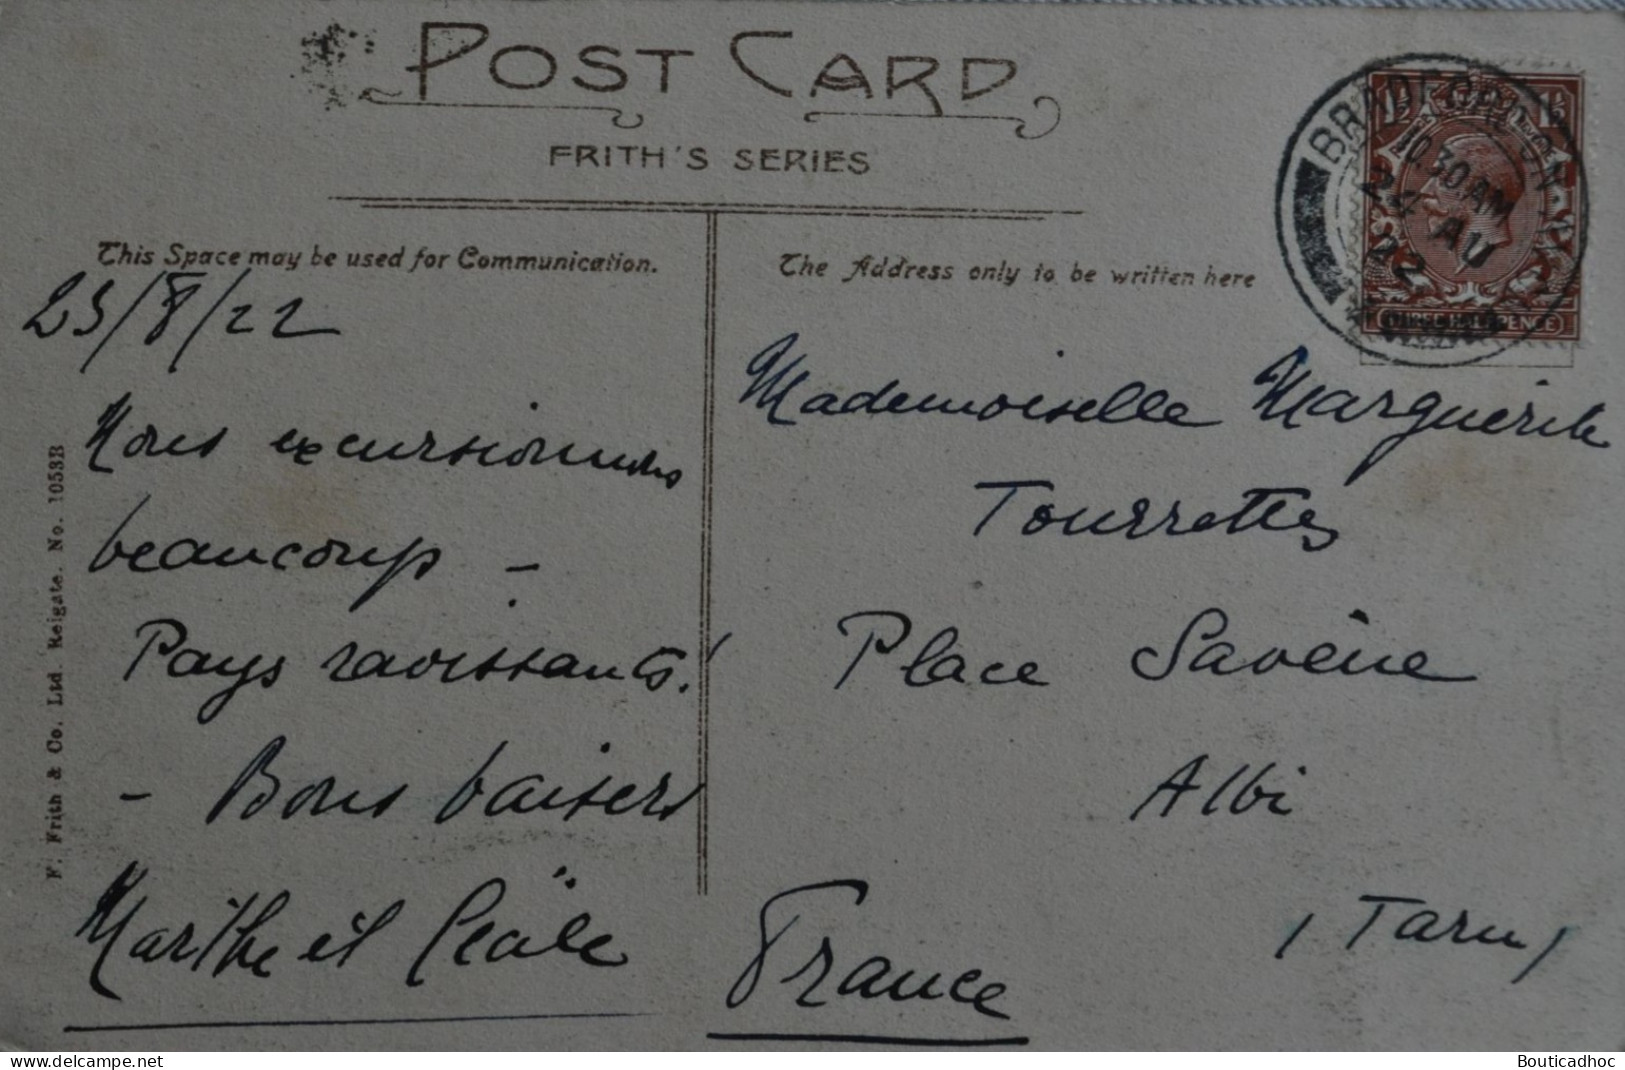 POST CARD
FRITH'S SERIES
This Space may be used for Communication.
The Address only to be written here
BRADFORD ON AVON
10.30 AM
24 AU
22
THREE HALFPENCE
23/8/22
Nous excursionnons
beaucoup -
Pays ravissants!
- Bons baisers
Marthe et
Mademoiselle Marguerite
Tourrettes
Place Savène
Albi
(Tarn)
France
F. Frith & Co. Ltd. Reigate. No. 1053B
Bouticadhoc